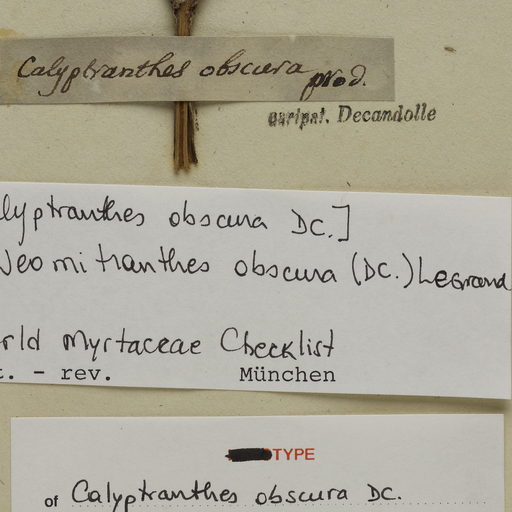 Calyptranthes obscura prod.
scripsit. Decandolle
lyptranthes obscura DC.]
Neomitranthes obscura (DC.) Legrand
rld Myrtaceae Checklist
t. - rev. München
TYPE
of Calyptranthes obscura DC.